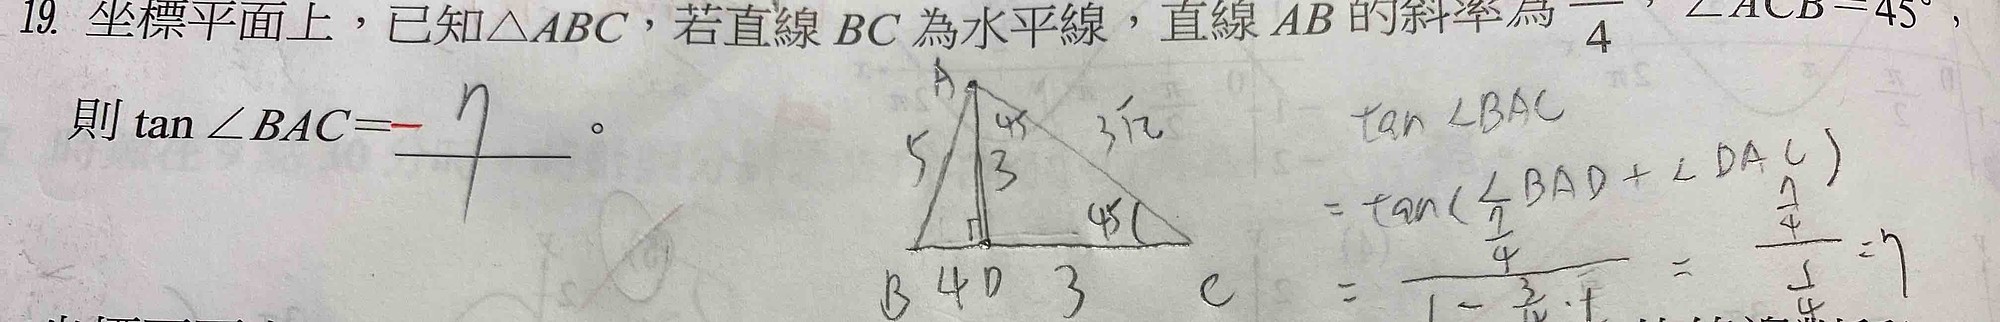 19. 坐標平面上，已知△ABC，若直線 BC 為水平線，直線 AB 的斜率為 4，∠ACB=45°，
則 tan ∠BAC=- 7 。
A
5
45
3
3√2
45
B 4 D 3 C
tan ∠BAC
= tan(∠BAD + ∠DAC)
= 7/4 / 1 - 3/4 · 1 = 7/4 / 1/4 = 7